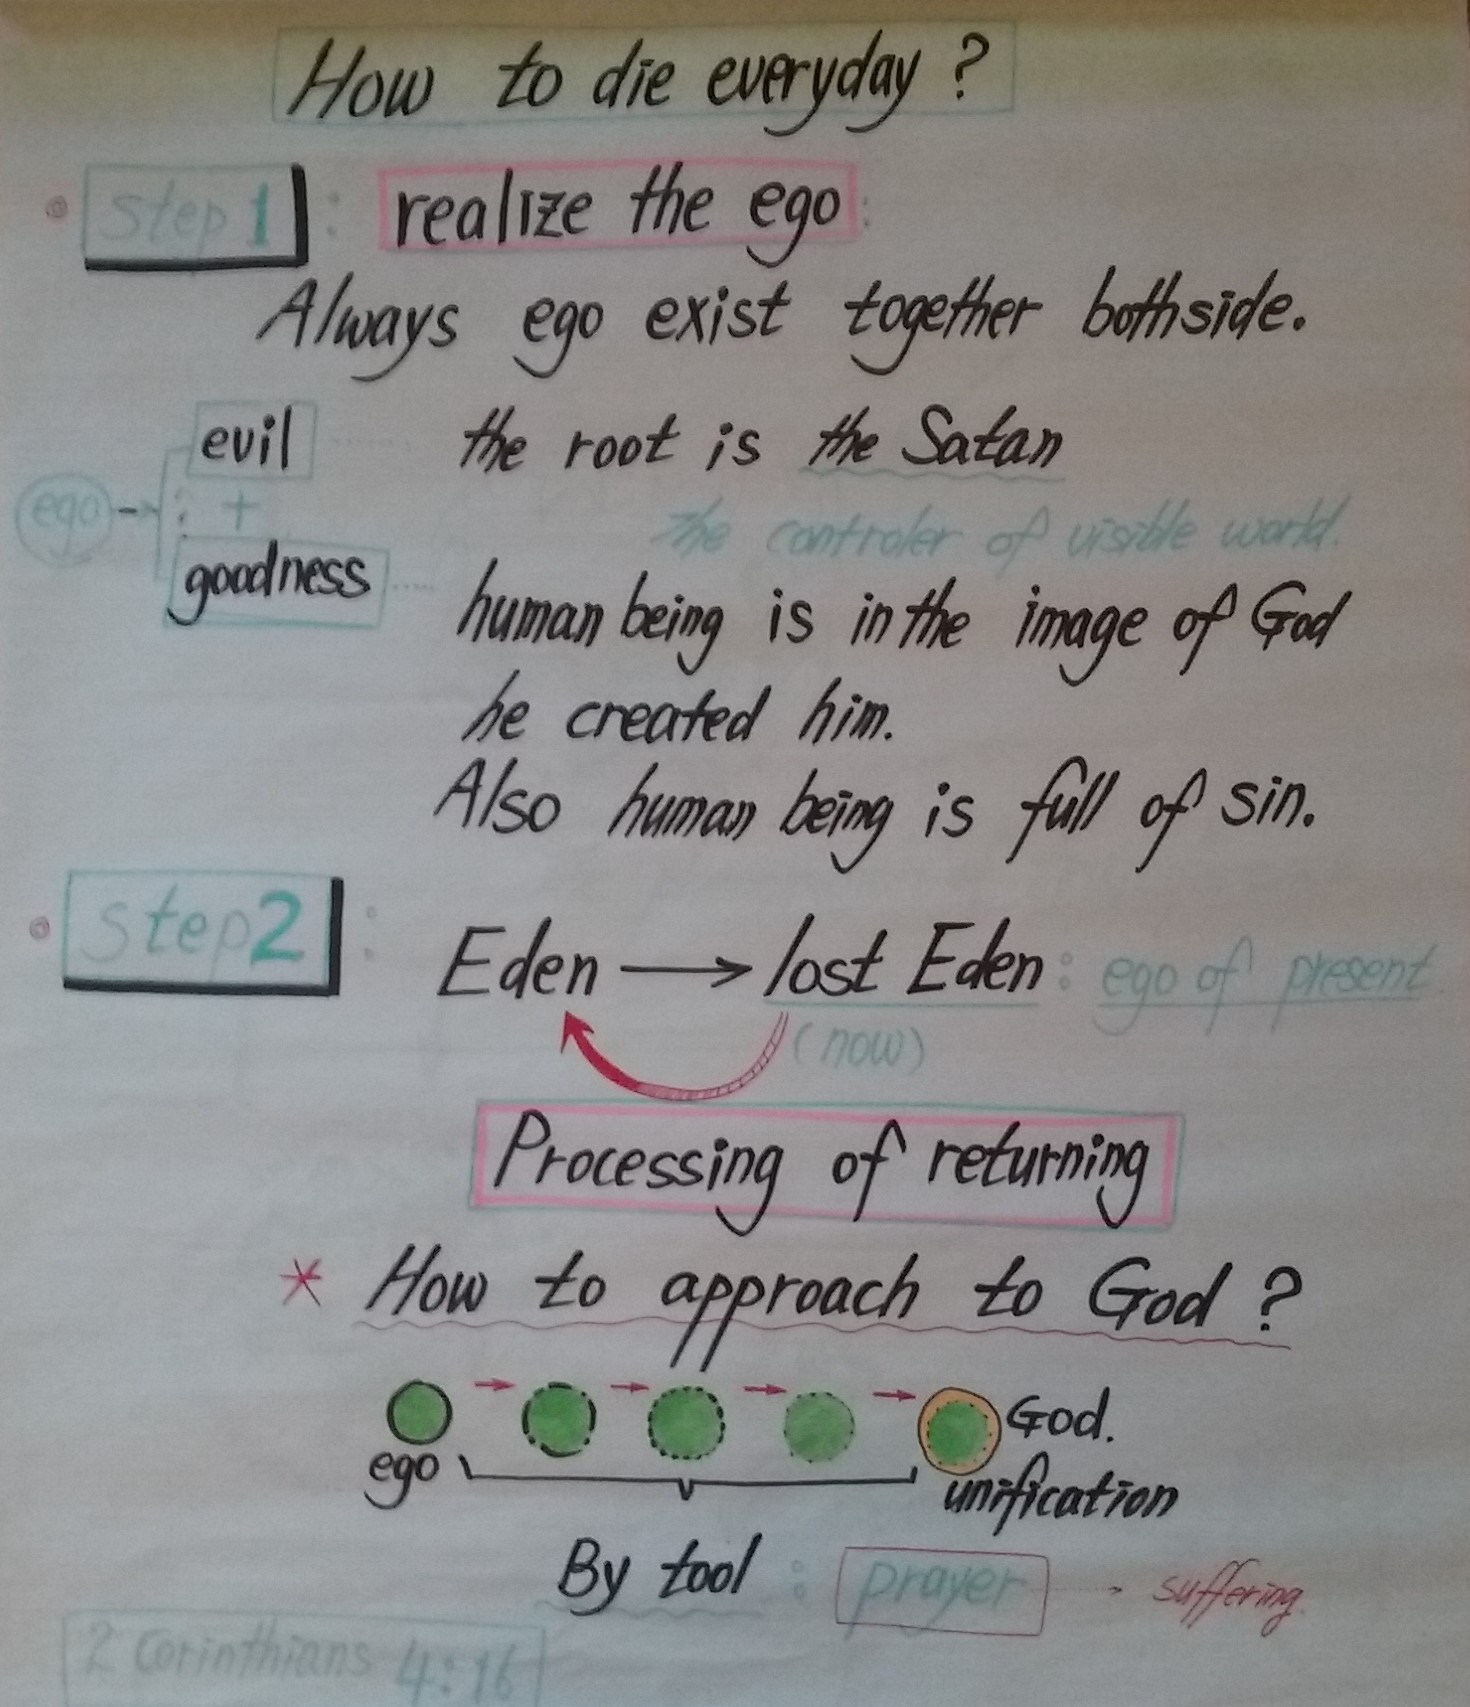 How to die everyday ?
step 1 : realize the ego :
Always ego exist together bothside.
evil ...... the root is the Satan
ego → ? +
the controler of visible world.
goodness ...... human being is in the image of God
he created him.
Also human being is full of sin.
step 2 : Eden → lost Eden : ego of present
(now)
Processing of returning
* How to approach to God ?
ego
God.
unification
By tool : prayer → suffering.
2 Corinthians 4:16